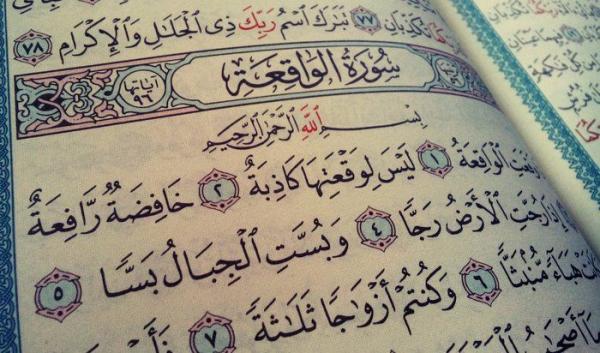 كُمَا تُكَذِّبَانِ ٧٧ تَبَٰرَكَ ٱسْمُ رَبِّكَ ذِى ٱلْجَلَٰلِ وَٱلْإِكْرَامِ ٧٨
سُورَةُ الوَاقِعَةِ
آياتها ٩٦
بِسْمِ ٱللَّهِ ٱلرَّحْمَٰنِ ٱلرَّحِيمِ
وَقَعَتِ ٱلْوَاقِعَةُ ١ لَيْسَ لِوَقْعَتِهَا كَاذِبَةٌ ٢ خَافِضَةٌ رَّافِعَةٌ
إِذَا رُجَّتِ ٱلْأَرْضُ رَجًّا ٤ وَبُسَّتِ ٱلْجِبَالُ بَسًّا ٥
هَبَآءً مُّنۢبَثًّا ٦ وَكُنتُمْ أَزْوَٰجًا ثَلَٰثَةً ٧
مَآ أَصْحَٰبُ